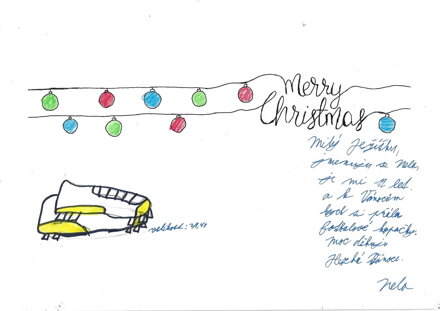 Merry
Christmas
Milý Ježíšku,
jmenuju se Nela,
je mi 12 let
a k Vánocům
bych si přála
fotbalové kopačky.
moc děkuju
Hezké Vánoce.
Nela
velikost: 39,40